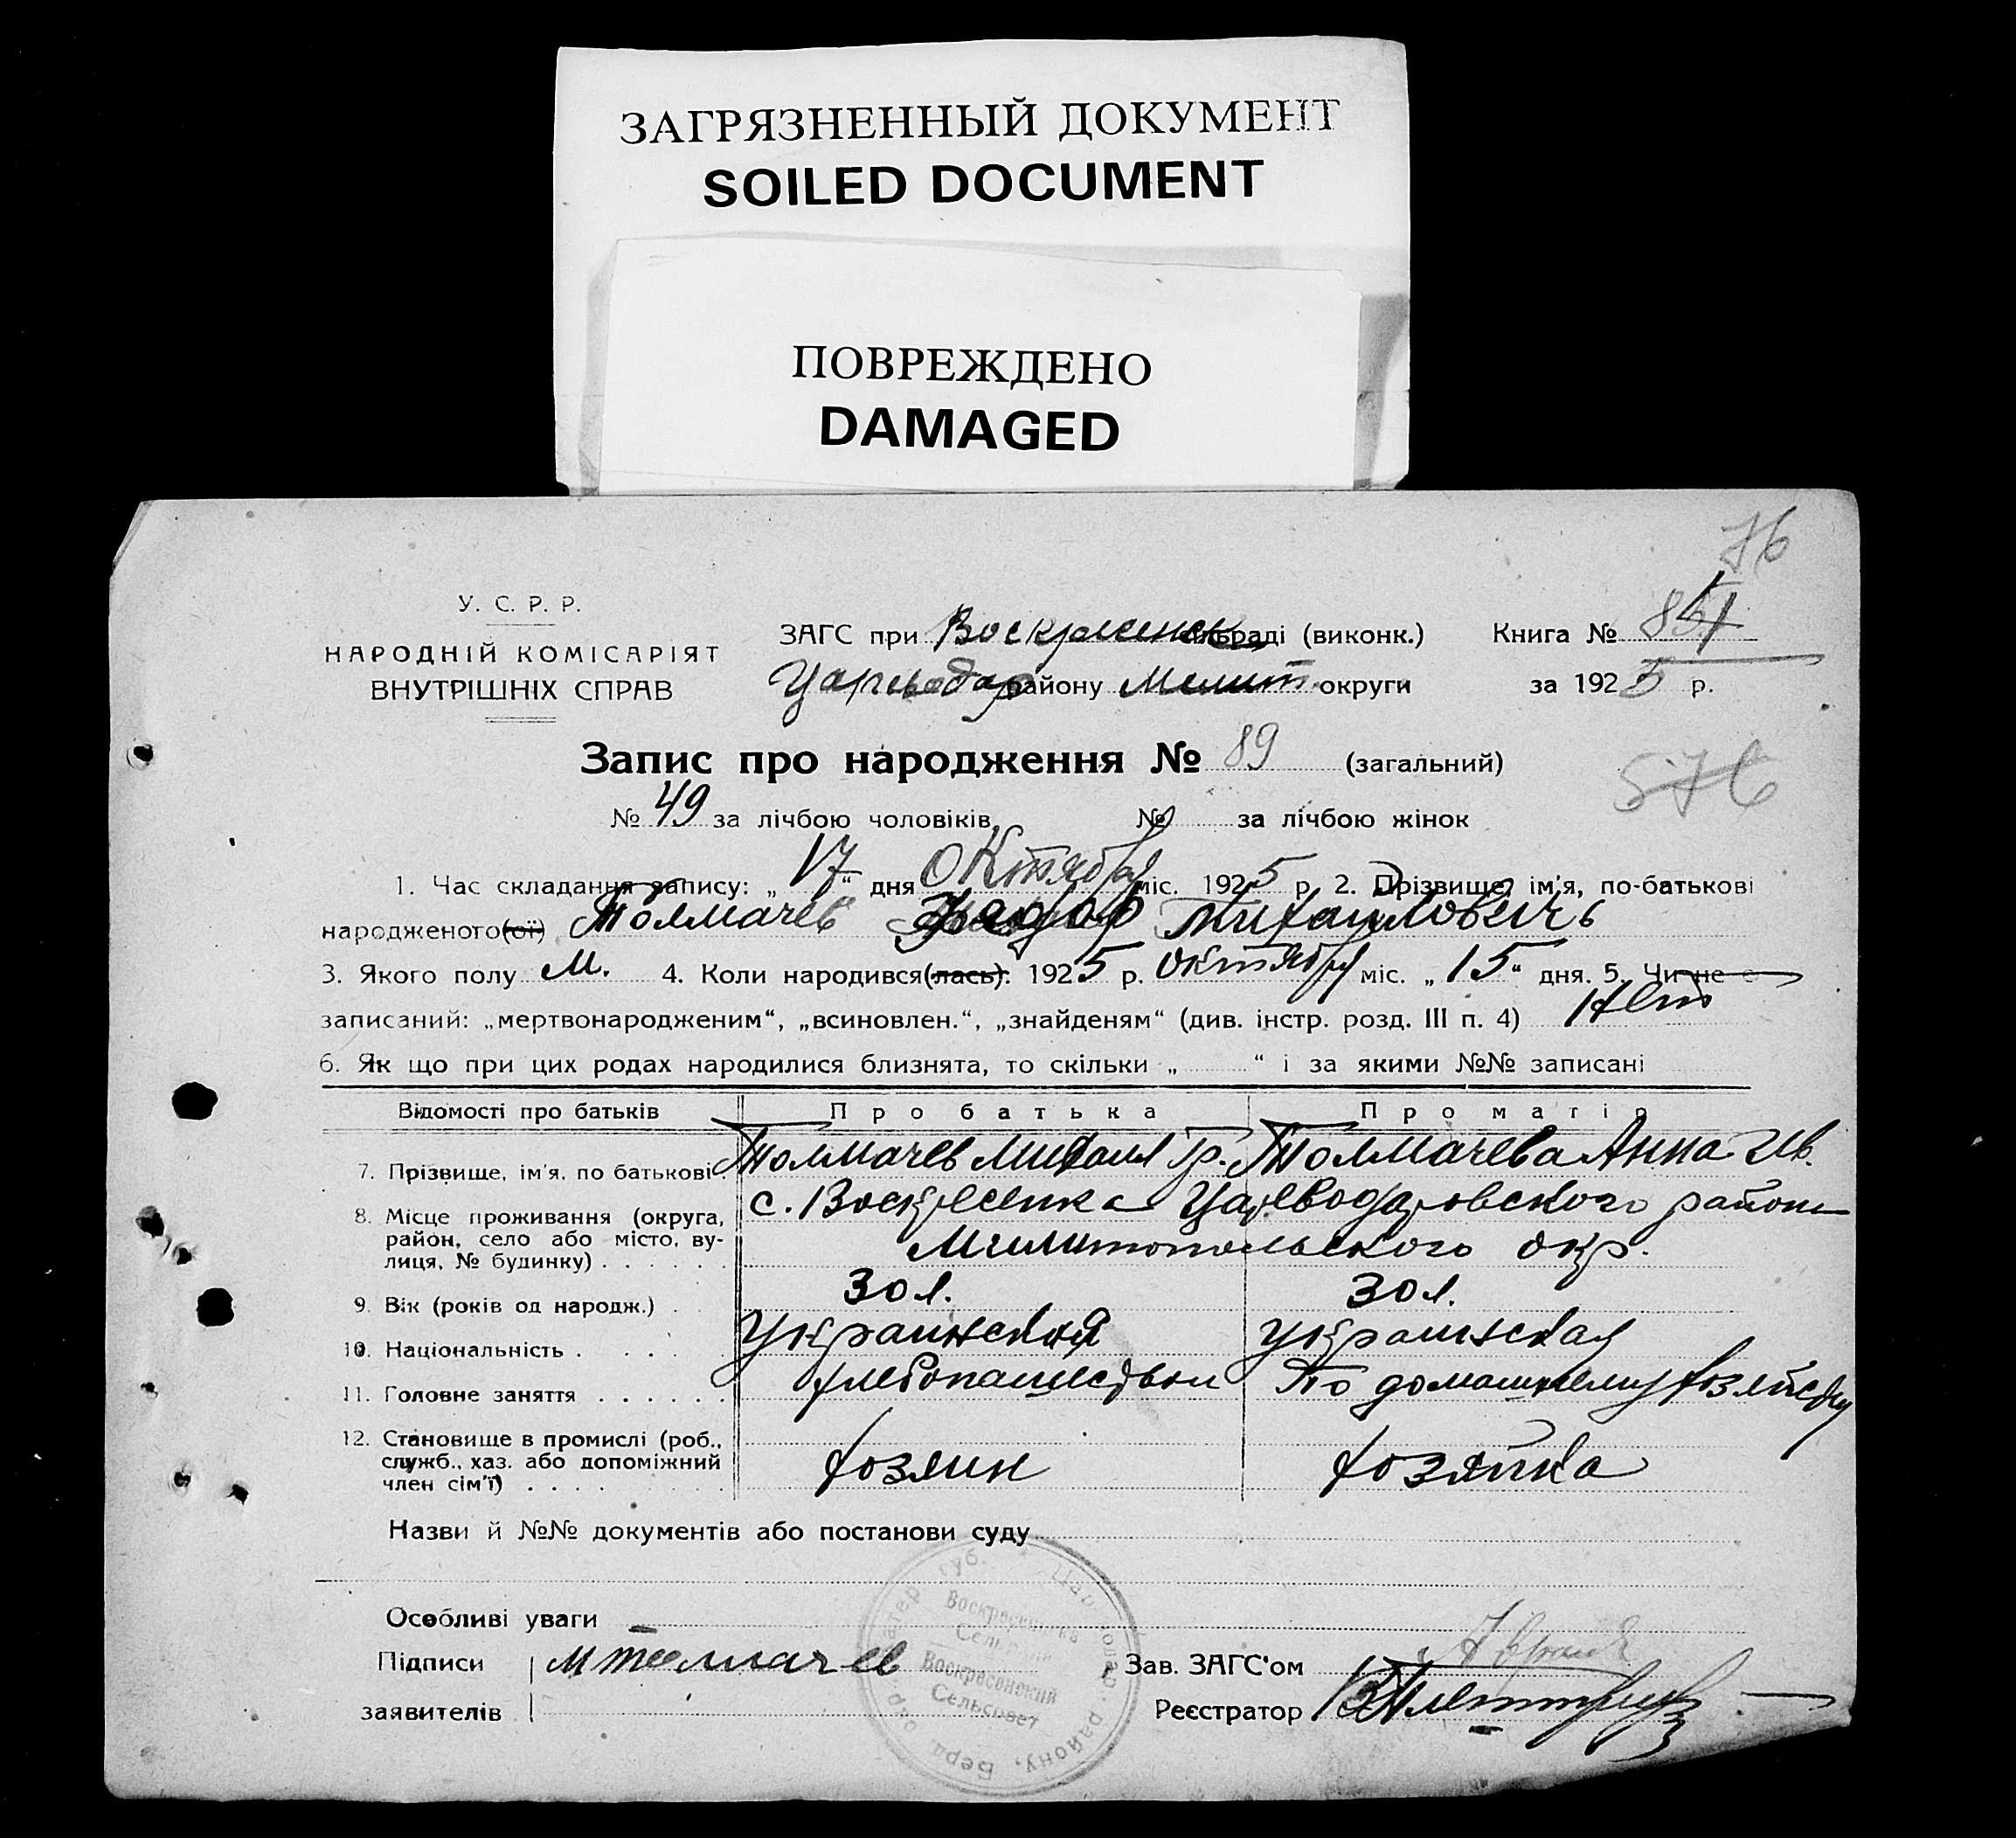 ЗАГРЯЗНЕННЫЙ ДОКУМЕНТ
SOILED DOCUMENT
ПОВРЕЖДЕНО
DAMAGED
76
У. С. Р. Р.
НАРОДНІЙ КОМІСАРІЯТ
ВНУТРІШНІХ СПРАВ
ЗАГС при Воскресенск сільраді (виконк.) Книга №
Цареводар району Мелит. округи за 1925 р.
Запис про народження № 89 (загальний)
576
№ 49 за лічбою чоловіків, № за лічбою жінок
1. Час складання запису: „17“ дня Октября міс. 1925 р. 2. Прізвище, ім'я, по-батькові
народженого(ої) Толмачев Федор Михайлович
3. Якого полу М. 4. Коли народився(лась): 1925 р. октября міс. „15“ дня. 5. Чи не є
записаний: „мертвонародженим“, „всиновлен.“, „знайденям“ (див. інстр. розд. III п. 4) Нет
6. Як що при цих родах народилися близнята, то скільки „ “ і за якими №№ записані
Відомості про батьків Про батька Про матір
7. Прізвище, ім'я, по батькові. Толмачев Михаил Гр. Толмачева Анна Ив.
8. Місце проживання (округа, район, село або місто, вулиця, № будинку) с. Воскресенка Цареводаровского района
Мелитопольского окр.
9. Вік (років од народж.) 30 л. 30 л.
10. Національність Украинская Украинская
11. Головне заняття хлебопашеством По домашнему хозяйству
12. Становище в промислі (роб., служб., хаз. або допоміжний член сім'ї) хозяин хозяйка
Назви й №№ документів або постанови суду
Особливі уваги
Підписи М Толмачев Зав. ЗАГС'ом
заявителів Реєстратор
Воскресенська
Сельрадий
Воскресенский
Сельсовет
району, Берд. окр.
губ.